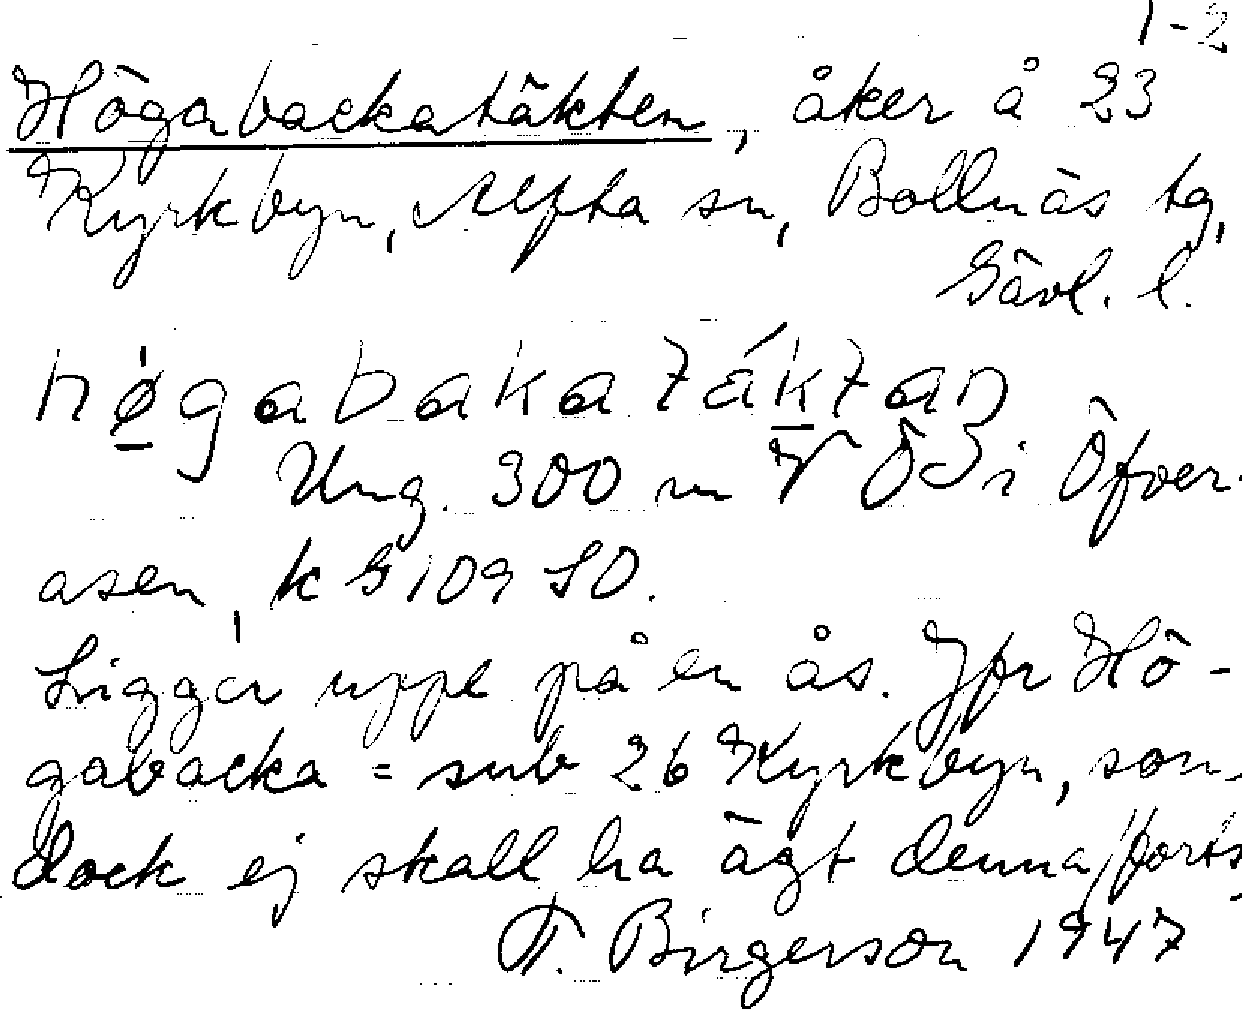 1-2
Högabackatäkten, åker å 23
Kyrkbyn, Alfta sn, Bollnäs tg,
Gävl. l.
høgabakatáktan
Ung. 300 m V ÖS i Öfver-
asen, k G 109 SO.
Ligger uppe på en ås. Jfr Hö-
gabacka = sub 26 Kyrkbyn, som
dock ej skall ha ägt denna /forts.
F. Birgerson 1947